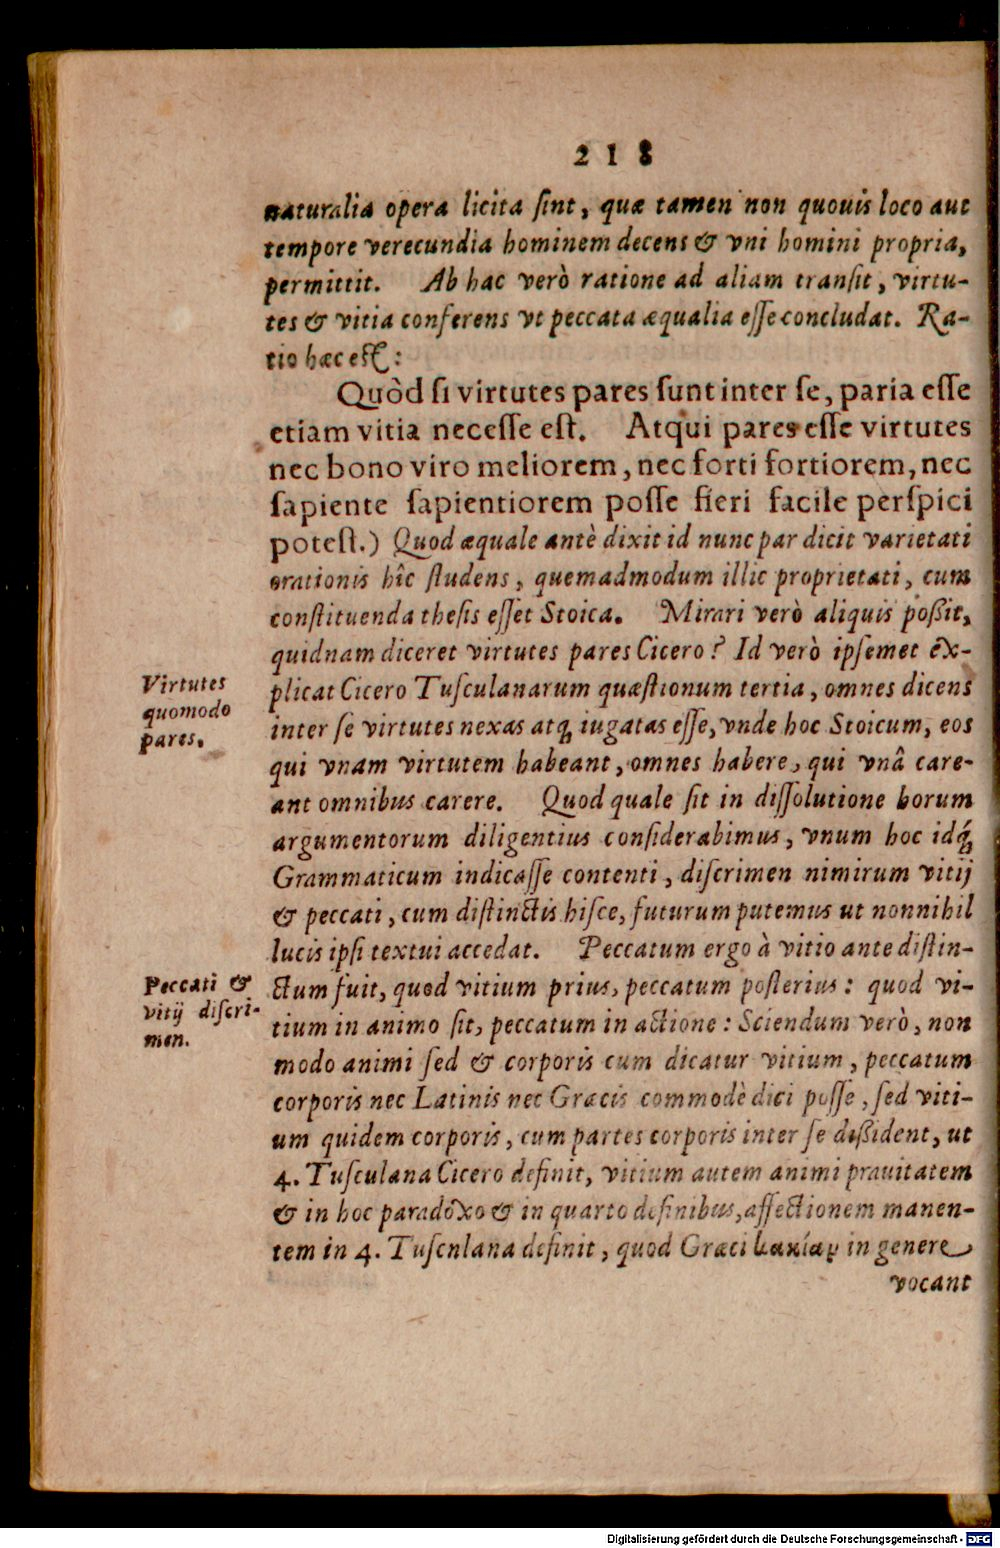 218
naturalia opera licita ſint, quæ tamen non quouis loco aut
tempore verecundia hominem decens & vni homini propria,
permittit. Ab hac verò ratione ad aliam tranſit, virtu-
tes & vitia conferens vt peccata æqualia eſſe concludat. Ra-
tio hæc eſt:
Quòd ſi virtutes pares ſunt inter ſe, paria eſſe
etiam vitia neceſſe eſt. Atqui pares eſſe virtutes
nec bono viro meliorem, nec forti fortiorem, nec
ſapiente ſapientiorem poſſe fieri facile perſpici
poteſt.) Quod æquale antè dixit id nunc par dicit varietati
orationis hîc ſtudens, quemadmodum illic proprietati, cum
conſtituenda theſis eſſet Stoica. Mirari verò aliquis poßit,
quidnam diceret virtutes pares Cicero? Id verò ipſemet ex-
Virtutes
quomodo
pares.
plicat Cicero Tuſculanarum quæſtionum tertia, omnes dicens
inter ſe virtutes nexas atq; iugatas eſſe, vnde hoc Stoicum, eos
qui vnam virtutem habeant, omnes habere, qui vnâ care-
ant omnibus carere. Quod quale ſit in diſſolutione horum
argumentorum diligentius conſiderabimus, vnum hoc idq́;
Grammaticum indicaſſe contenti, diſcrimen nimirum vitij
& peccati, cum diſtinctis hiſce, futurum putemus ut nonnihil
lucis ipſi textui accedat. Peccatum ergo à vitio ante diſtin-
Peccati &
vitij diſcri-
men.
ctum fuit, quod vitium prius, peccatum poſterius: quod vi-
tium in animo ſit, peccatum in actione: Sciendum verò, non
modo animi ſed & corporis cum dicatur vitium, peccatum
corporis nec Latinis nec Græcis commodè dici poſſe, ſed viti-
um quidem corporis, cum partes corporis inter ſe dißident, ut
4. Tuſculana Cicero definit, vitium autem animi prauitatem
& in hoc paradoxo & in quarto definibus, affectionem manen-
tem in 4. Tuſcnlana definit, quod Græci κακίαν in genere
vocant
Digitalisierung gefördert durch die Deutsche Forschungsgemeinschaft - DFG